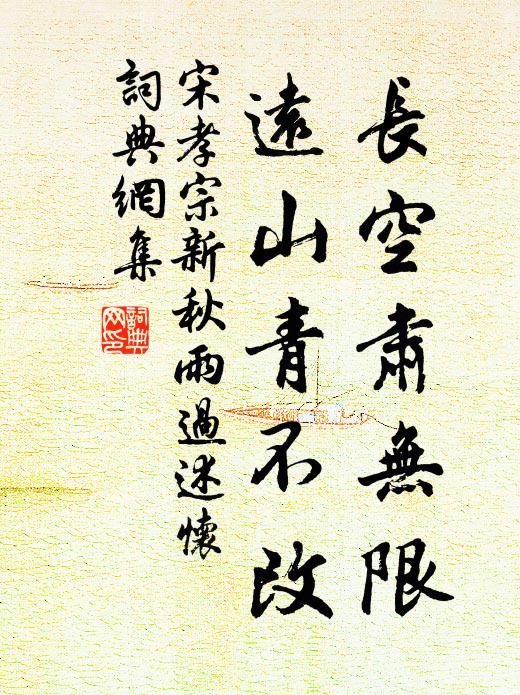 長空肅無限
遠山青不改
宋孝宗新秋雨過述懷
詞典網集
詞典
网印